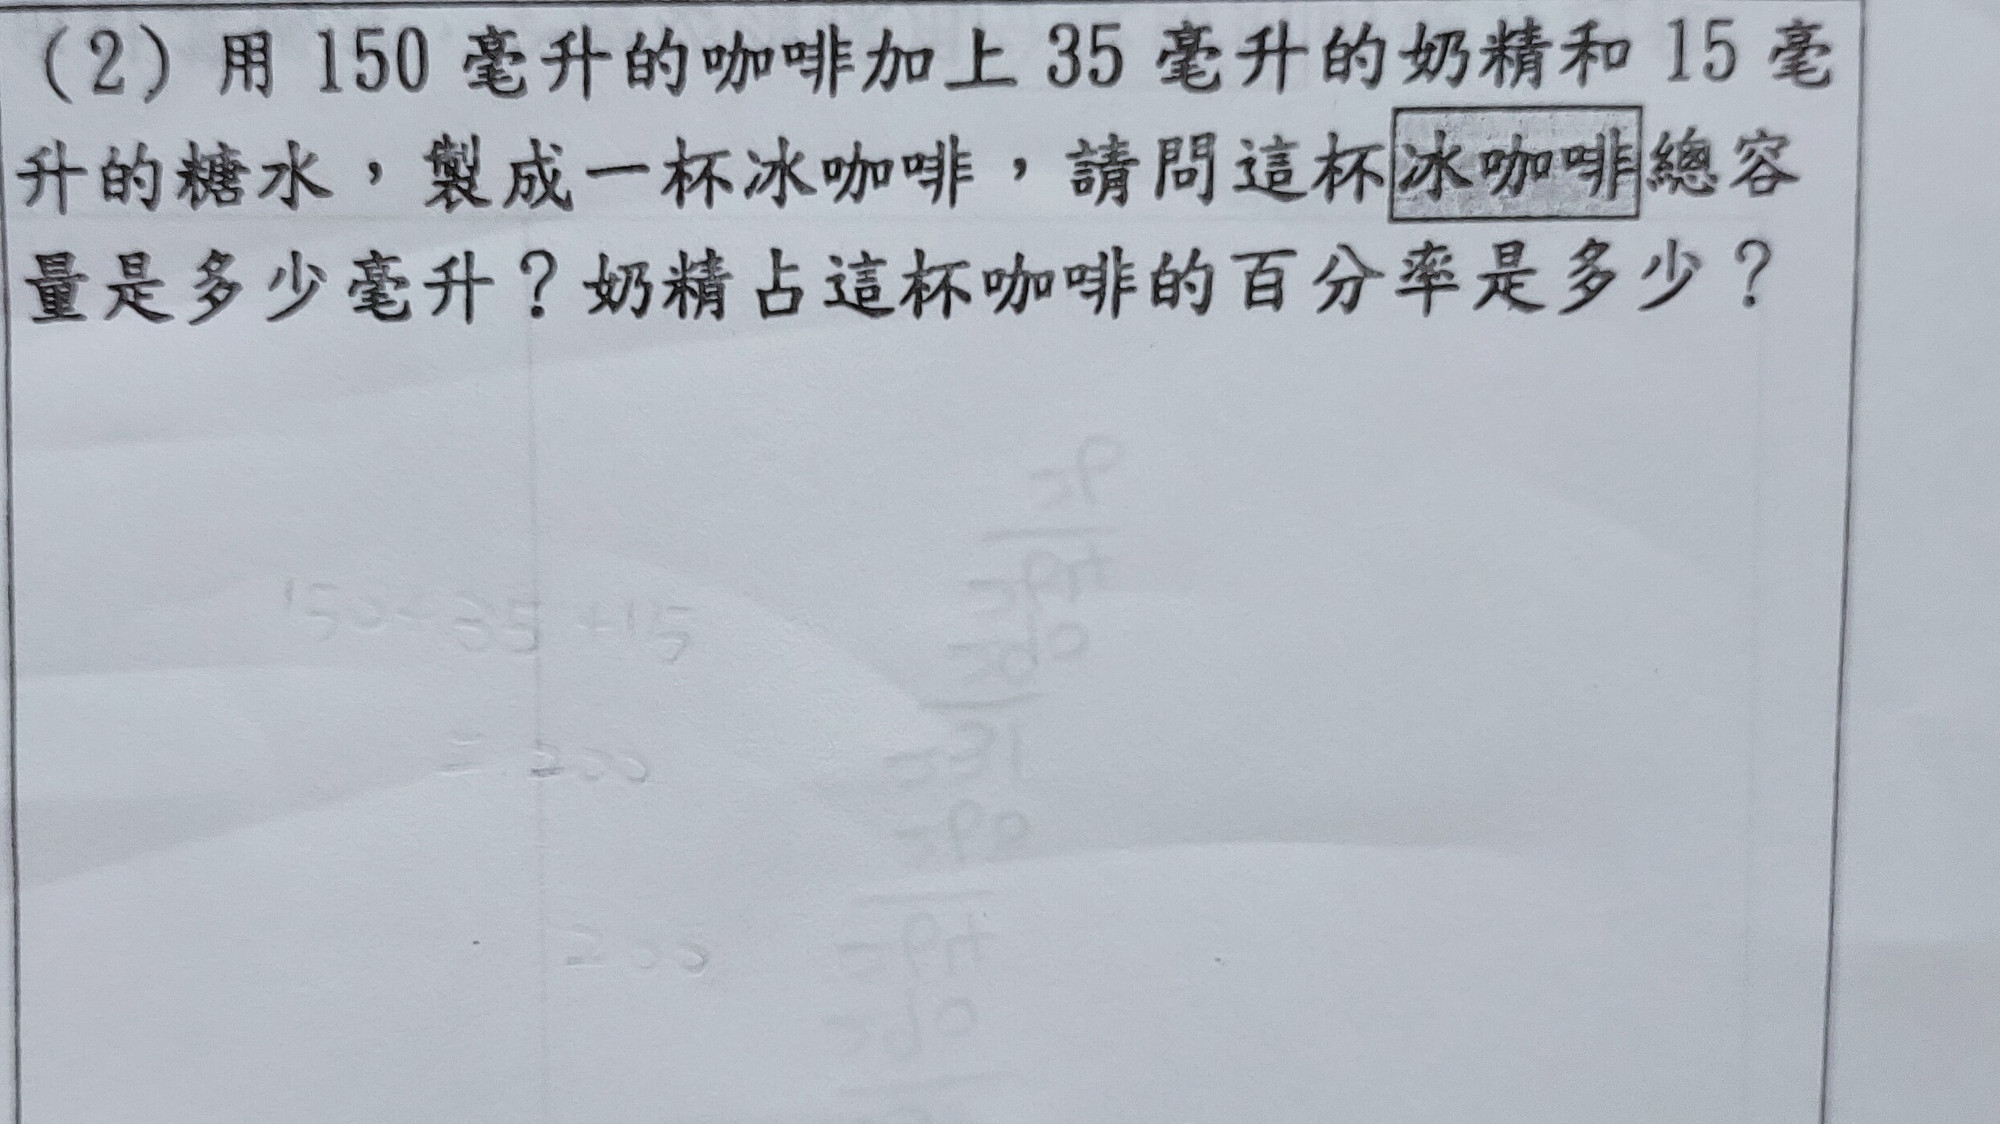 (2) 用 150 毫升的咖啡加上 35 毫升的奶精和 15 毫
升的糖水，製成一杯冰咖啡，請問這杯冰咖啡總容
量是多少毫升？奶精占這杯咖啡的百分率是多少？
150+35+15
=200
200